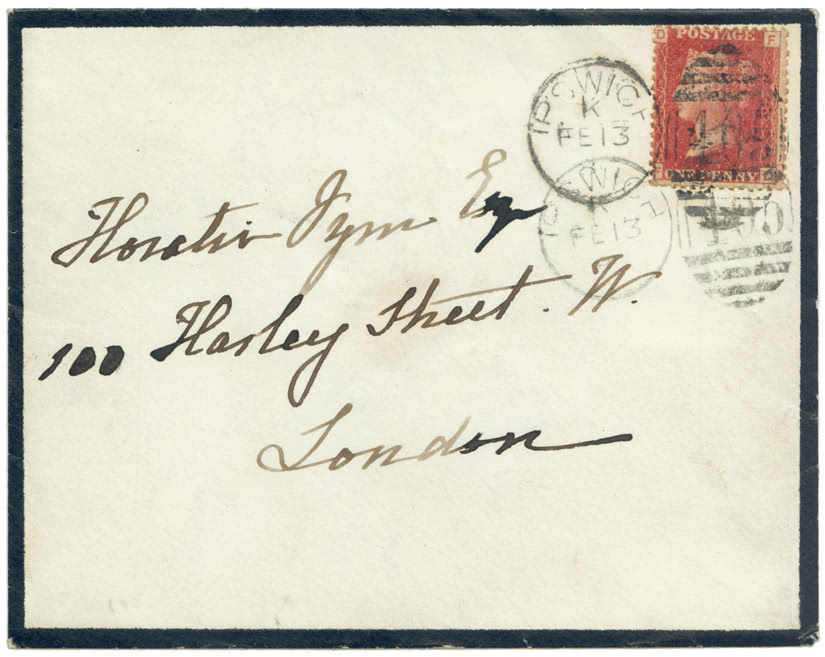 D POSTAGE F
F ONE PENNY D
IPSWICH
K
FE 13
IPSWICH
K
FE 13
Horatio Pym Esq
100 Harley Street. W.
London